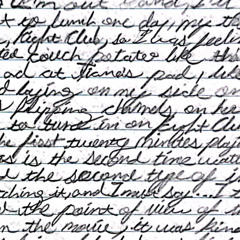 out
to lunch one day, my th
, Fight Club, so I was feeli
ted couch potato like tha
ad at Hands pad, like
d lying on my side on
s flipping channels on her
to tune in on Fight Clu
he first twenty minutes play
as is the second time watc
d the second type of i
tching it, and I must say... I t
d the point of view of
n the movie, it was kind